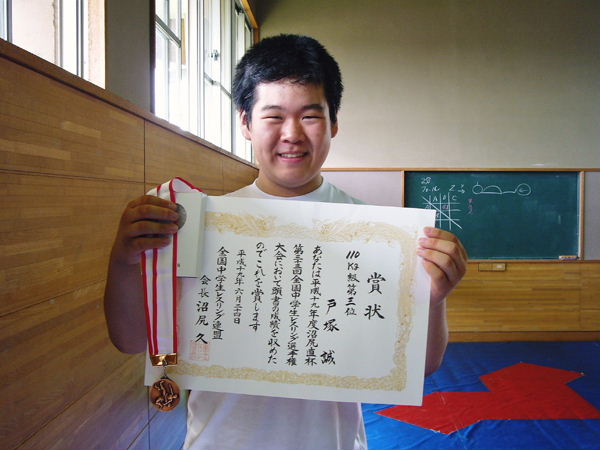 賞状
110kg級第三位
戸塚 誠
あなたは平成十九年度沼尻直杯
第三三回全国中学生レスリング選手権
大会において頭書の成績を収めた
のでこれを賞します
平成十九年六月二四日
全国中学生レスリング連盟
会長 沼尻 久
28
フォール
A B C